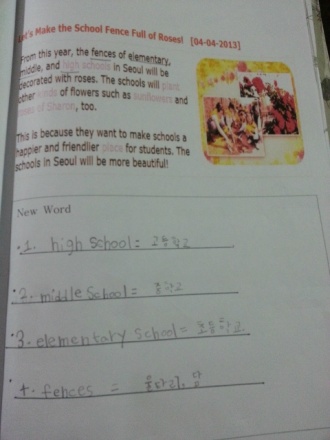 Let's Make the School Fence Full of Roses! [04-04-2013]
From this year, the fences of elementary,
middle, and high schools in Seoul will be
decorated with roses. The schools will plant
other kinds of flowers such as sunflowers and
roses of Sharon, too.
This is because they want to make schools a
happier and friendlier place for students. The
schools in Seoul will be more beautiful!
New Word
1. high School = 고등학교
2. middle School = 중학교
3. elementary school = 초등학교
4. fences = 울타리, 담